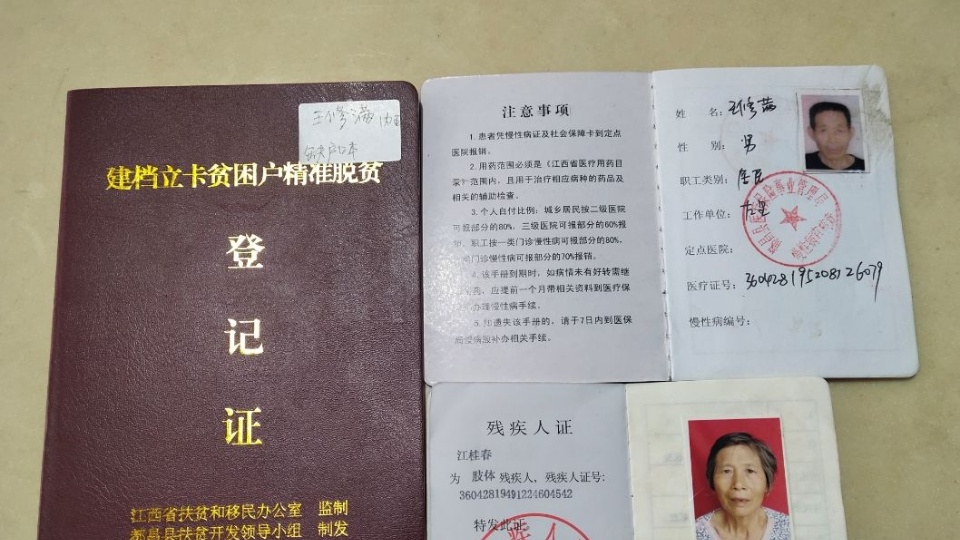 王修满
缺户口本
建档立卡贫困户精准脱贫
登
记
证
江西省扶贫和移民办公室 监制
都昌县扶贫开发领导小组 制发
注意事项
1.患者凭慢性病证及社会保障卡到定点
医院报销。
2.用药范围必须是《江西省医疗用药目
录》范围内，且用于治疗相应病种的药品及
相关的辅助检查。
3.个人自付比例：城乡居民按二级医院
可报部分的80%、三级医院可报部分的60%报
职工按一类门诊慢性病可报部分的80%、
门诊慢性病可报部分的70%报销。
4.该手册到期时，如病情未有好转需继
应提前一个月带相关资料到医疗保
办理慢性病手续。
5.如遗失该手册的，请于7日内到医保
慢病股补办相关手续。
姓 名：王修满
性 别：男
职工类别：居民
工作单位：左里
定点医院：
医疗证号：360428195208126079
慢性病编号：
残疾人证
江桂春
为 肢体 残疾人，残疾人证号：
36042819491224604542
特发此证